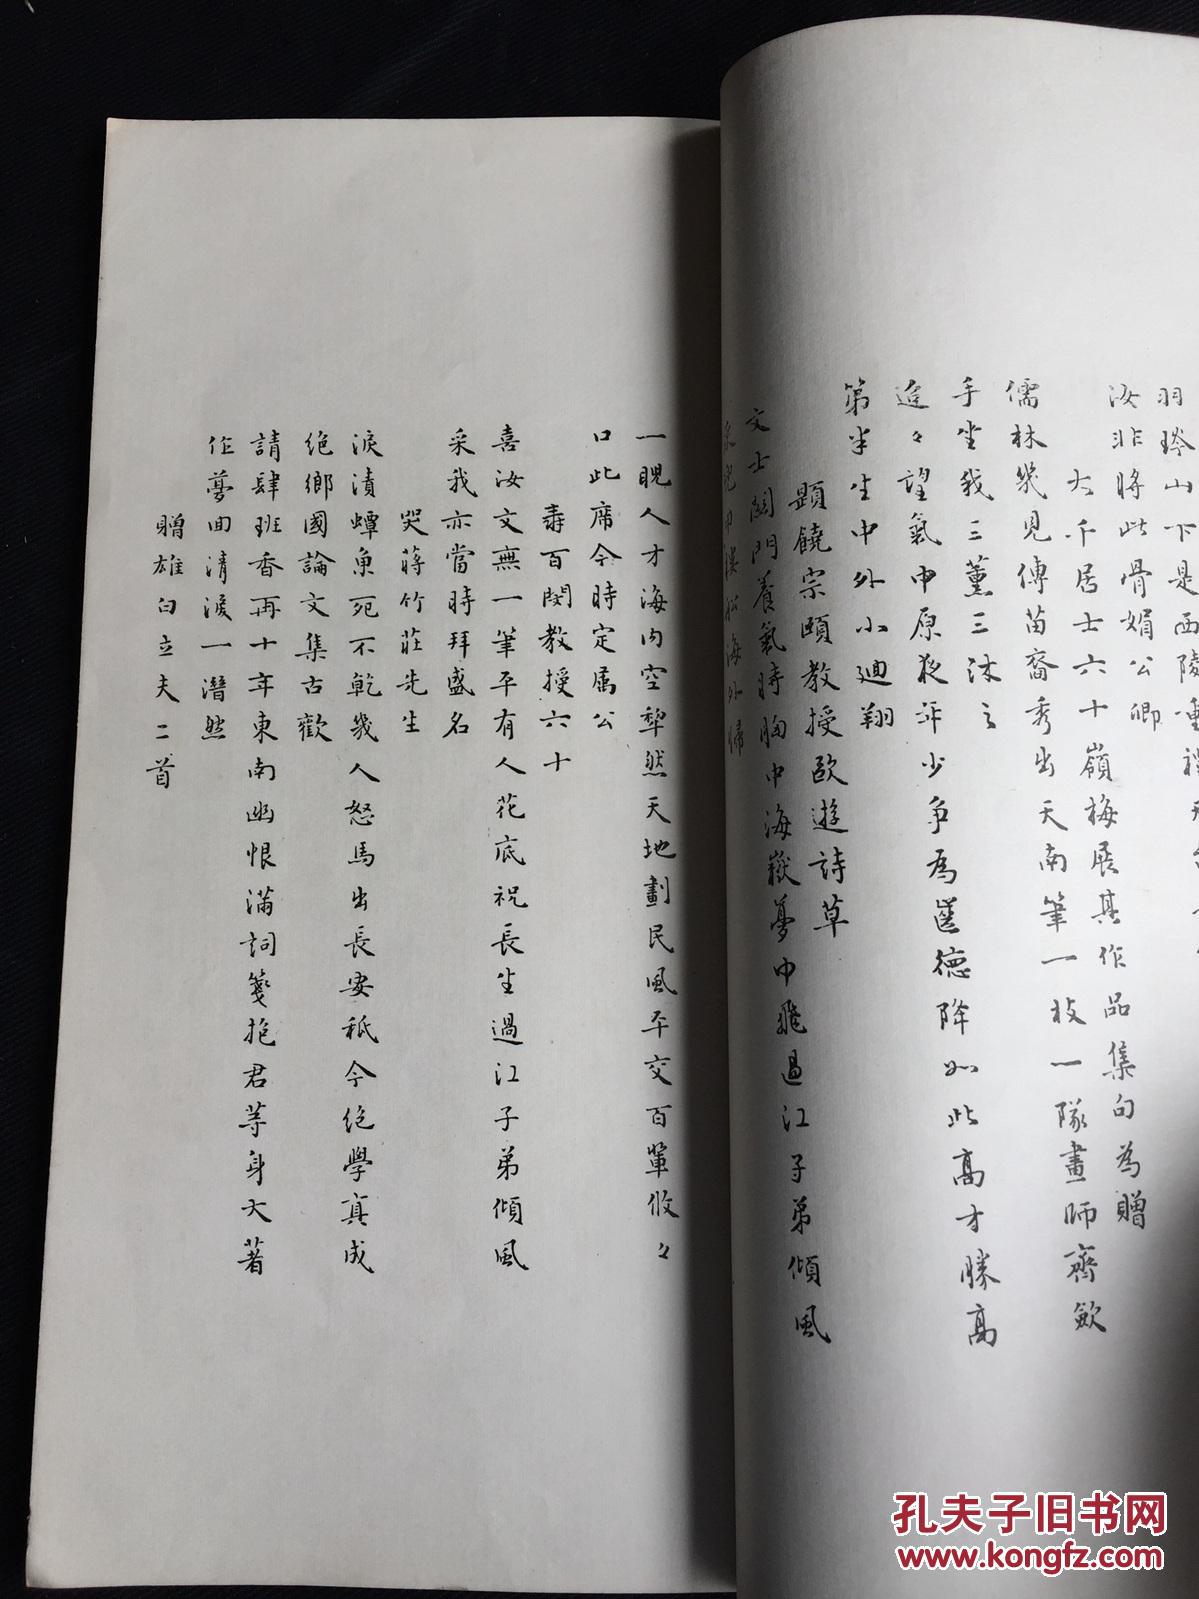 羽琌山下是西陵
汝非將此骨媚公卿
大千居士六十
嶺梅展其作品集句為贈
儒林幾見傳苗裔秀出天南筆一枝一隊畫師齊斂
手坐我三薰三沐之
迨々望氣中原夜
少爭為
德降如此高才勝高
第半生中外小迴翔
題饒宗頤教授歐遊詩草
文士關門養氣時胸中海嶽夢中飛過江子弟傾風
采
海外歸
一睨人才海內空犂然天地劃民風平交百輩攸々
口此席今時定屬公
壽百閔教授六十
喜汝文無一筆平有人花底祝長生過江子弟傾風
采我亦當時拜盛名
哭蔣竹莊先生
淚漬蟫魚死不乾幾人怒馬出長安秖今絕學真成
絕鄉國論文集古歡
請肆班香再十年東南幽恨滿詞箋抱君等身大著
作夢回清淚一潸然
贈雄白立夫二首
孔夫子旧书网
www.kongfz.com